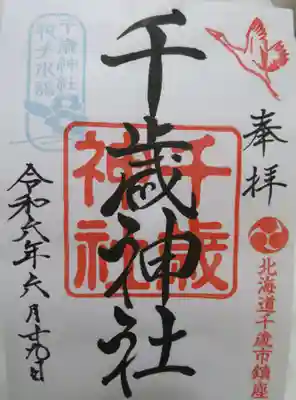 奉拝
北海道千歳市鎮座
千歳神社
千歳
神社
千歳神社
令和六年六月